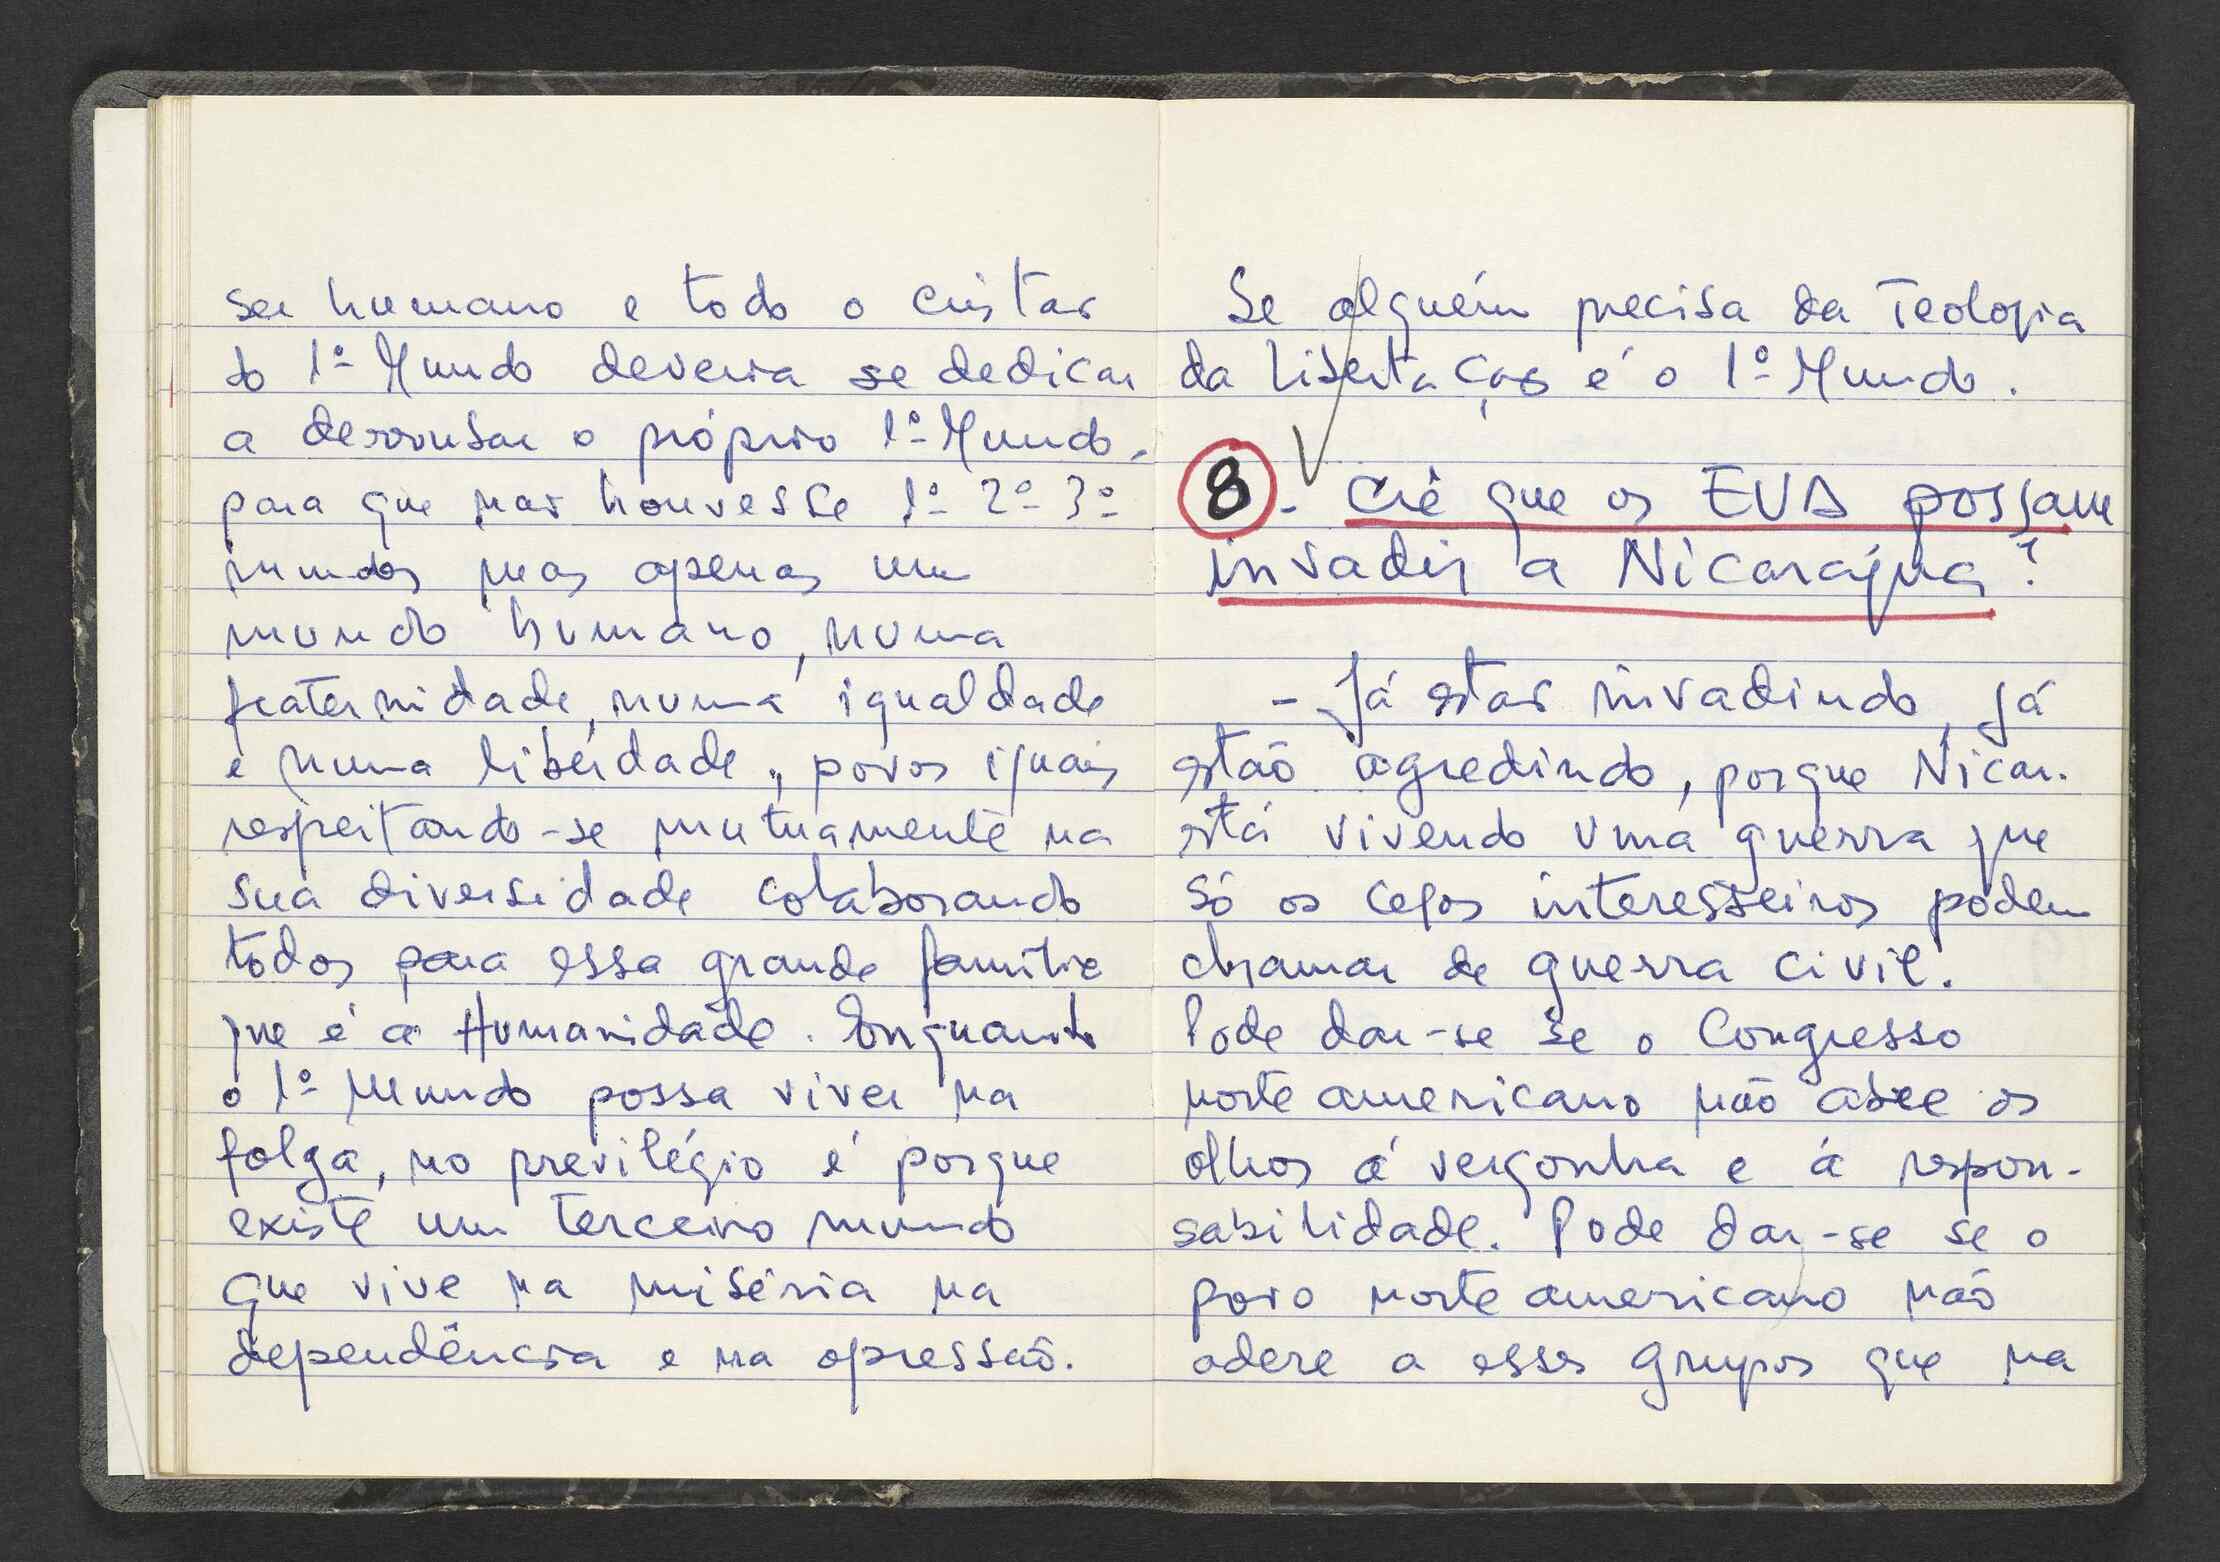 ser humano e todo o cristão
do 1º Mundo deveria se dedicar
a derrubar o próprio 1º Mundo,
para que não houvesse 1º 2º 3º
mundos mas apenas um
mundo humano, numa
fraternidade, numa igualdade
e numa liberdade, povos iguais
respeitando-se mutuamente na
sua diversidade colaborando
todos para essa grande família
que é a Humanidade. Enquanto
o 1º Mundo possa viver na
folga, no previlégio é porque
existe um terceiro mundo
que vive na miséria na
dependência e na opressão.
Se alguém precisa da Teologia
da Libertação é o 1º Mundo.
8 - Crê que os EUA possam
invadir a Nicarágua?
- Já estão invadindo, já
estão agredindo, porque Nicar.
está vivendo uma guerra que
só os cegos interesseiros podem
chamar de guerra civil.
Pode dar-se se o Congresso
norte americano não abre os
olhos á vergonha e á respon-
sabilidade. Pode dar-se se o
povo norte americano não
adere a esses grupos que na